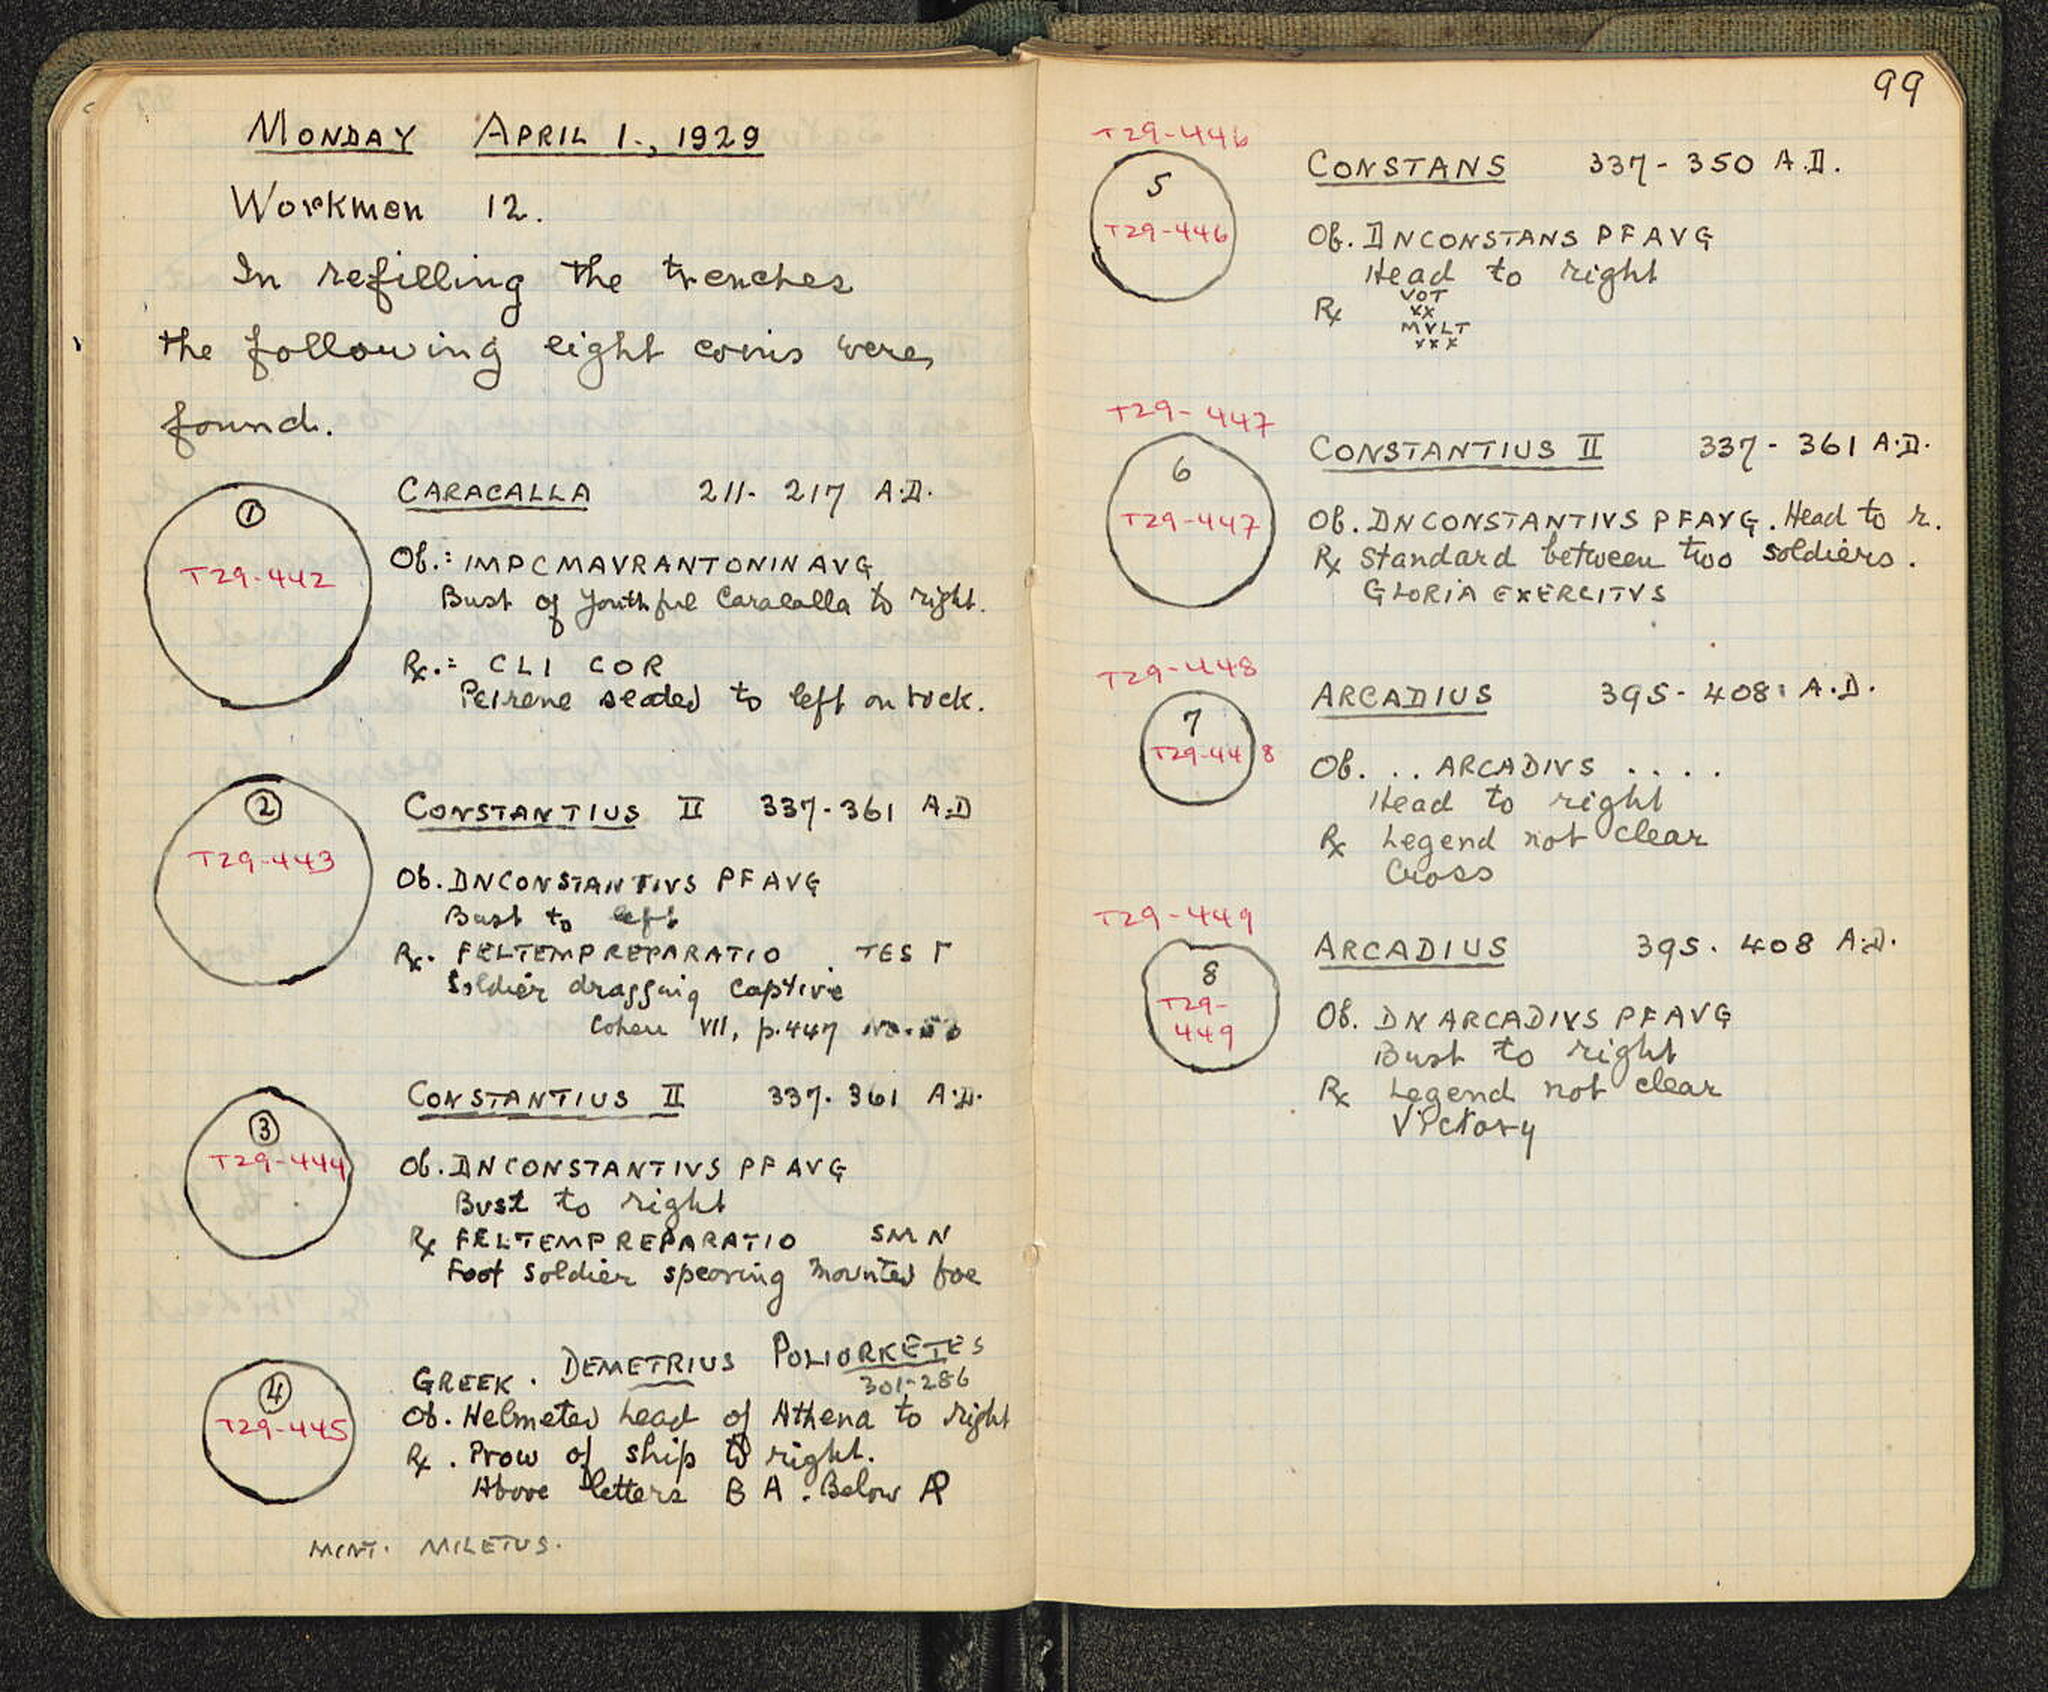 MONDAY APRIL 1., 1929
Workmen 12.
In refilling the trenches
the following eight coins were
found.
1
T29-442
CARACALLA 211-217 A.D.
Ob.: IMPCMAVRANTONINAVG
Bust of youthful Caracalla to right.
Rx.: CLI COR
Peirene seated to left on rock.
2
T29-443
CONSTANTIUS II 337-361 A.D
Ob. DNCONSTANTIVS PFAVG
Bust to left
Rx. FELTEMPREPARATIO . TES Γ
Soldier dragging captive
Cohen VII, p.447 No.
3
T29-444
CONSTANTIUS II 337-361 A.D.
Ob. DNCONSTANTIVS PFAVG
Bust to right
Rx FELTEMPREPARATIO SMN
Foot soldier spearing mounted foe
4
T29-445
GREEK. DEMETRIUS POLIORKETES
301-286
Ob. Helmeted head of Athena to right
Rx. Prow of ship to right.
Above letters B A. Below AP
MINT. MILETUS.
99
T29-446
5
T29-446
CONSTANS 337-350 A.D.
Ob. DNCONSTANS PFAVG
Head to right
Rx VOT
XX
MVLT
XXX
T29-447
6
T29-447
CONSTANTIUS II 337-361 A.D.
Ob. DNCONSTANTIVS PFAVG. Head to r.
Rx Standard between two soldiers.
GLORIA EXERCITVS
T29-448
7
T29-448
ARCADIUS 395-408 A.D.
Ob. .. ARCADIVS ....
Head to right
Rx Legend not clear
Cross
T29-449
8
T29-
449
ARCADIUS 395-408 A.D.
Ob. DNARCADIVS PFAVG
Bust to right
Rx Legend not clear
Victory